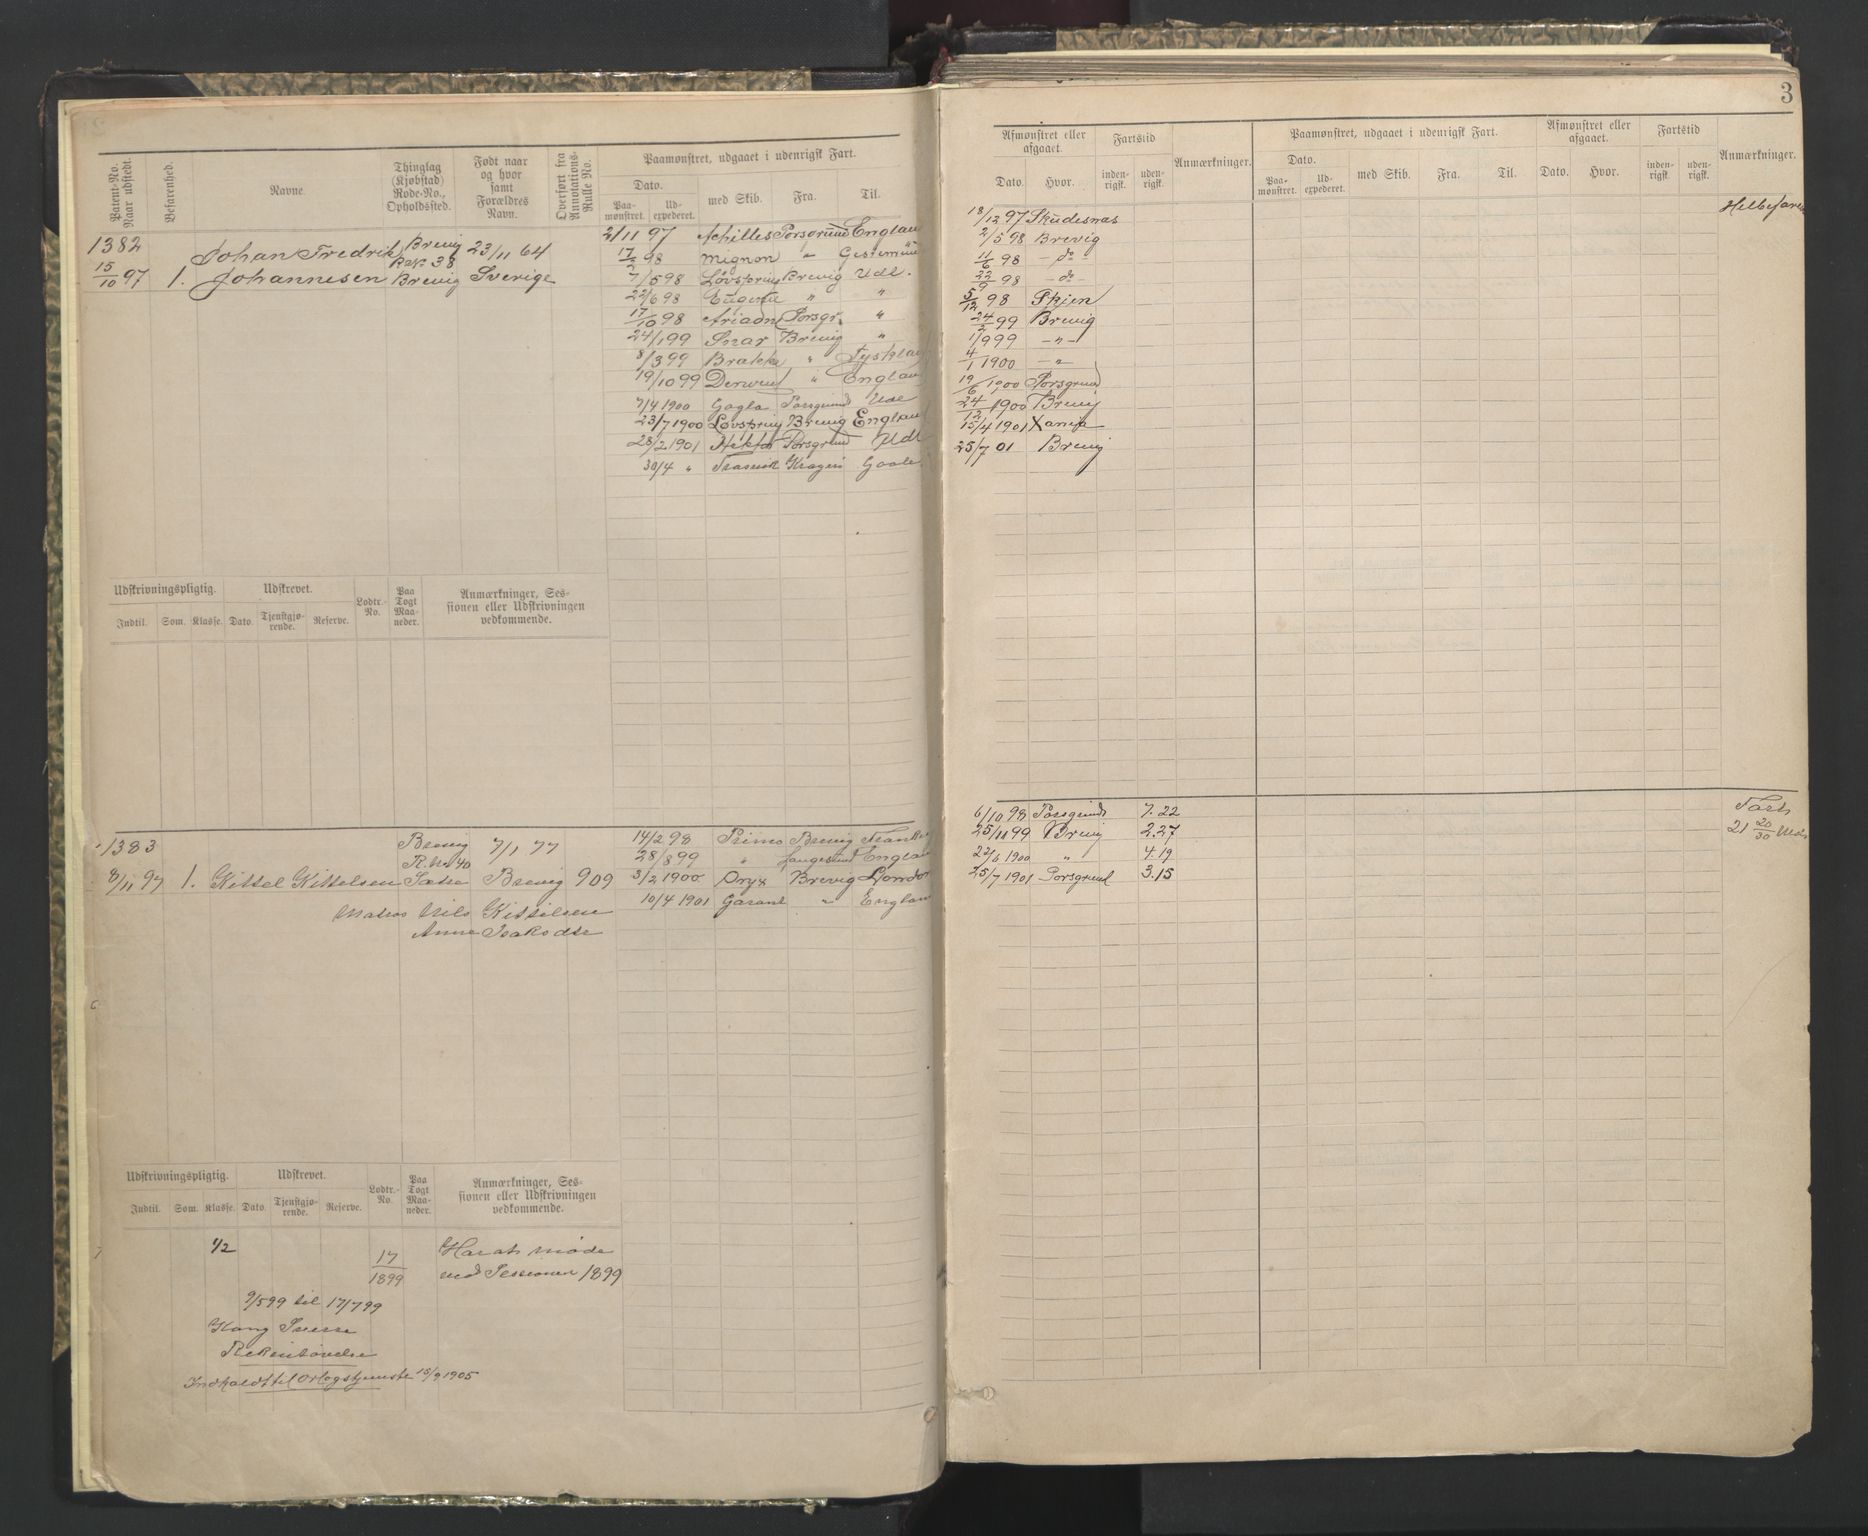 3
Patent-No. Naar udstedt.
Befarenhed.
Navne.
Thinglag (Kjøbstad) Rode-No., Opholdssted.
Født naar og hvor samt Forældres Navn.
Overført fra Annotations-Rulle No.
Paamønstret, udgaaet i udenrigsk Fart.
Dato.
Paa-mønstret.
Ud-expederet.
med Skib.
Fra.
Til.
1382
15/10 97
1.
Johan Fredrik
Johannesen
Brevig
38
Brevig
23/11 64
Sverige
2/11 97 Achilles Porsgrund England
17/2 98 Mignon " 
7/5 98 Løvspring Brevig Udl.
22/6 98 Eugenie " "
17/10 98 Ariadne Porsgr. "
24/1 99 Snar Brevig "
8/3 99 Brakka " Tyskland
19/10 99 Derwent " England
7/4 1900 Gogla Porsgrund Udl
23/7 1900 Løvspring Brevig England
28/2 1901 Hektor Porsgrund Udl
30/4 " Kragerø Goole
Udskrivningspligtig.
Udskrevet.
Lodtr.-No.
Paa Togt Maa-neder.
Anmærkninger, Ses-
sionen eller Udskrivningen
vedkommende.
Indtil.
Som.
Klasse.
Dato.
Tjenstgjø-rende.
Reserve.
1383
8/11 97
1.
Kittel Kittelsen
Brevig
R.No 40
7/1 77
Brevig
909
Matros Nils Kittilsen
Anne Isaksdtr
14/2 98 Primo Brevig
28/8 99 " Langesund England
3/2 1900 Oryx Brevig London
10/4 1901 Garant " England
Udskrivningspligtig.
Udskrevet.
Lodtr.-No.
Paa Togt Maa-neder.
Anmærkninger, Ses-
sionen eller Udskrivningen
vedkommende.
Indtil.
Som.
Klasse.
Dato.
Tjenstgjø-rende.
Reserve.
1/2
17/1899
Har at møde
ved Sessionen 1899
9/5 99 til 17/7 99
Kong Sverre
Indkaldt til Orlogstjeneste 15/9 1905
Afmønstret eller afgaaet.
Fartstid
Anmærkninger.
Paamønstret, udgaaet i udenrigsk Fart.
Afmønstret eller afgaaet.
Fartstid
Anmærkninger.
Dato.
Hvor.
inden-rigsk.
uden-rigsk.
Dato.
Paa-mønstret.
Ud-expederet.
med Skib.
Fra.
Til.
Dato.
Hvor.
inden-rigsk.
uden-rigsk.
Helbefaren
18/12 97 Skudesnæs
2/5 98 Brevig
11/6 98 - do -
22/9 98 - do -
5/12 98 Skien
24/2 99 Brevig
1/9 99 - " -
4/1 1900 - " -
19/6 1900 Porsgrund
24/12 1900 Brevig
15/4 1901 Xania
25/7 01 Brevig
6/10 98 Porsgrund 7.22
25/11 99 Brevig 2.27
22/6 1900 " 4.19
25/7 1901 Porsgrund 3.15
Fart
21 20/30 Mdr